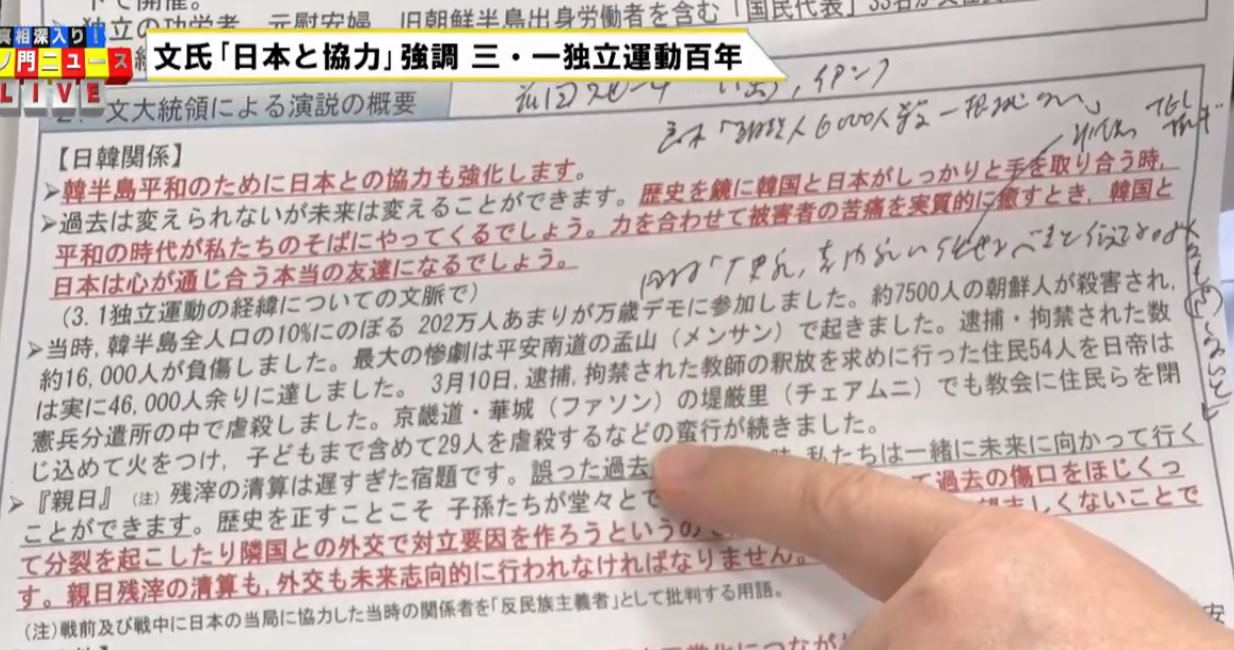 で開催。
独立の功労者、元慰安婦、旧朝鮮半島出身労働者を含む「国民代表」33名が
真相深入り!
ノ門ニュース
LIVE
文氏「日本と協力」強調 三・一独立運動百年
文大統領による演説の概要
【日韓関係】
➢韓半島平和のために日本との協力も強化します。
➢過去は変えられないが未来は変えることができます。歴史を鏡に韓国と日本がしっかりと手を取り合う時,
平和の時代が私たちのそばにやってくるでしょう。力を合わせて被害者の苦痛を実質的に癒すとき,韓国と
日本は心が通じ合う本当の友達になるでしょう。
(3.1独立運動の経緯についての文脈で)
➢当時,韓半島全人口の10%にのぼる 202万人あまりが万歳デモに参加しました。約7500人の朝鮮人が殺害され,
約16,000人が負傷しました。最大の惨劇は平安南道の孟山(メンサン)で起きました。逮捕・拘禁された数
は実に46,000人余りに達しました。 3月10日,逮捕,拘禁された教師の釈放を求めに行った住民54人を日帝は
憲兵分遣所の中で虐殺しました。京畿道・華城(ファソン)の堤厳里(チェアムニ)でも教会に住民らを閉
じ込めて火をつけ,子どもまで含めて29人を虐殺するなどの蛮行が続きました。
➢『親日』(注)残滓の清算は遅すぎた宿題です。誤った過去 時,私たちは一緒に未来に向かって行く
ことができます。歴史を正すことこそ 子孫たちが堂々とで て過去の傷口をほじくっ
て分裂を起こしたり隣国との外交で対立要因を作ろうというので 望ましくないことで
す。親日残滓の清算も,外交も未来志向的に行われなければなりません。
(注)戦前及び戦中に日本の当局に協力した当時の関係者を「反民族主義者」として批判する用語。